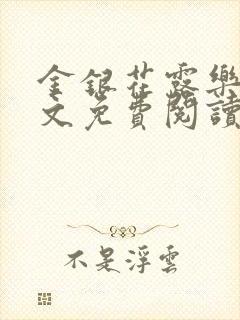 金銀花露樂
文免費閱讀
不是浮雲